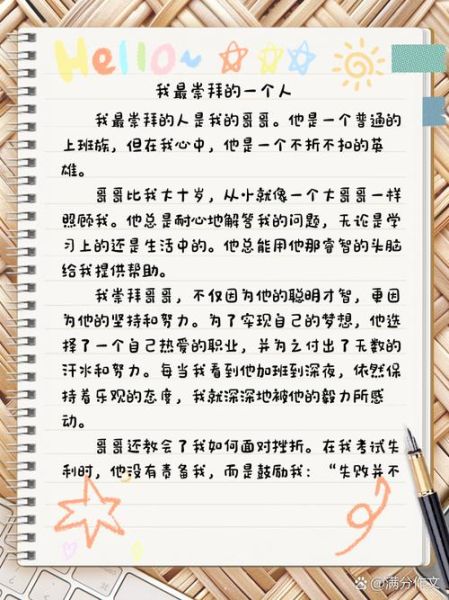 Hello~
我最崇拜的一个人
我最崇拜的人是我的哥哥。他是一个普通的
上班族，但在我心中，他是一个不折不扣的英
雄。
哥哥比我大十岁，从小就像一个大哥哥一样
照顾我。他总是耐心地解答我的问题，无论是学
习上的还是生活中的。他总能用他那睿智的头脑
给我提供帮助。
我崇拜哥哥，不仅因为他的聪明才智，更因
为他的坚持和努力。为了实现自己的梦想，他选
择了一个自己热爱的职业，并为之付出了无数的
汗水和努力。每当我看到他加班到深夜，依然保
持着乐观的态度，我就深深地被他的毅力所感
动。
哥哥还教会了我如何面对挫折。在我考试失
利时，他没有责备我，而是鼓励我：“失败并不
@满分作文